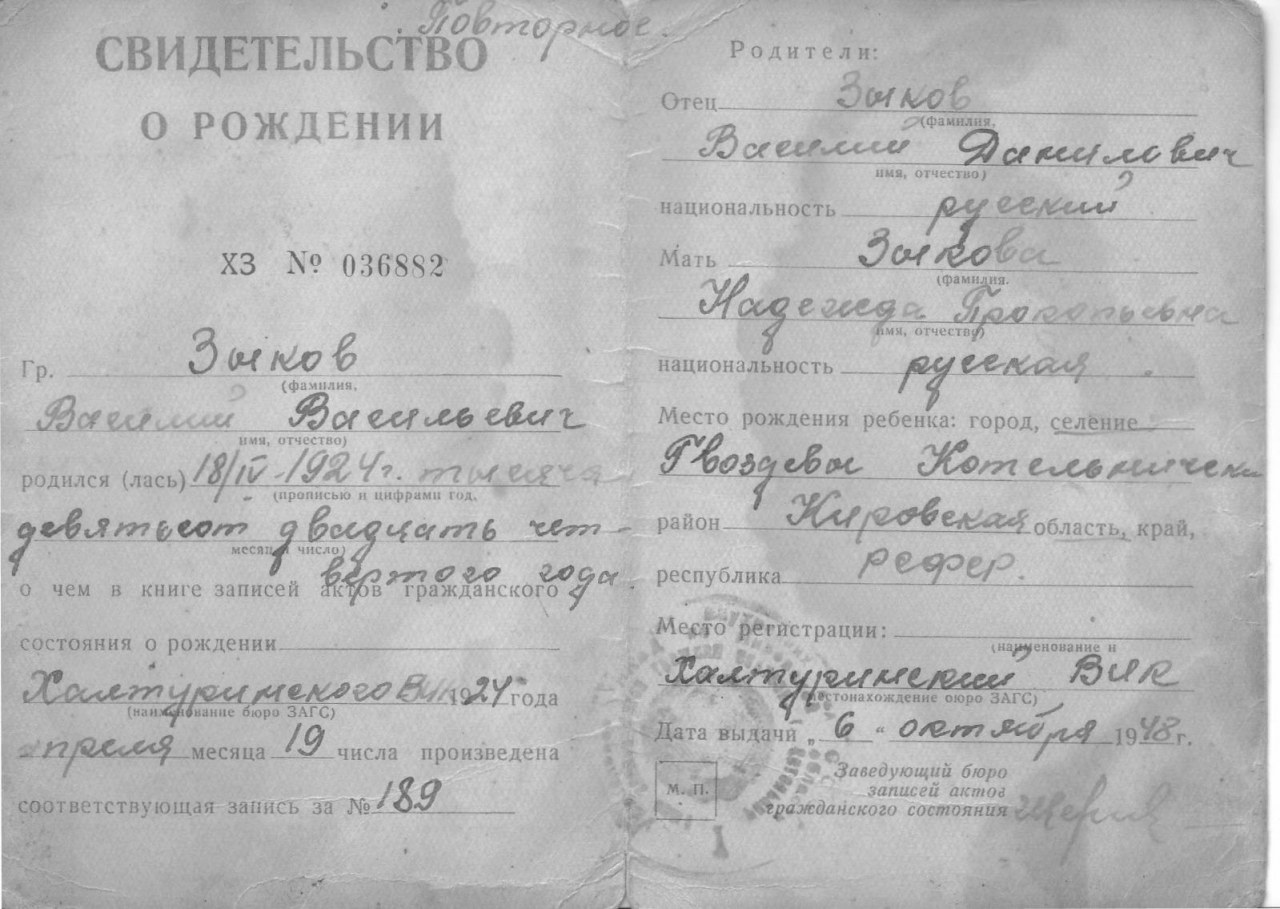 Повторное.
СВИДЕТЕЛЬСТВО
О РОЖДЕНИИ
ХЗ № 036882
Гр. Зыков
(фамилия,
Василий Васильевич
имя, отчество)
родился (лась) 18/IV-1924г. тысяча
(прописью и цифрами год,
девятьсот двадцать чет-
месяц и число)
вертого года
о чем в книге записей актов гражданского
состояния о рождении
Халтуринского 1924 года
(наименование бюро ЗАГС)
апреля месяца 19 числа произведена
соответствующая запись за № 189
Родители:
Отец Зыков
(фамилия,
Василий Данилович
имя, отчество)
национальность русский
Мать Зыкова
(фамилия.
Надежда Прокопьевна
имя, отчество)
национальность русская
Место рождения ребенка: город, селение
Гвоздевы Котельнически
район Кировская область, край,
республика РСФСР.
Место регистрации:
(наименование и
Халтуринский
местонахождение бюро ЗАГС)
Дата выдачи „6" октября 1948 г.
Заведующий бюро
записей актов
гражданского состояния
М. П.